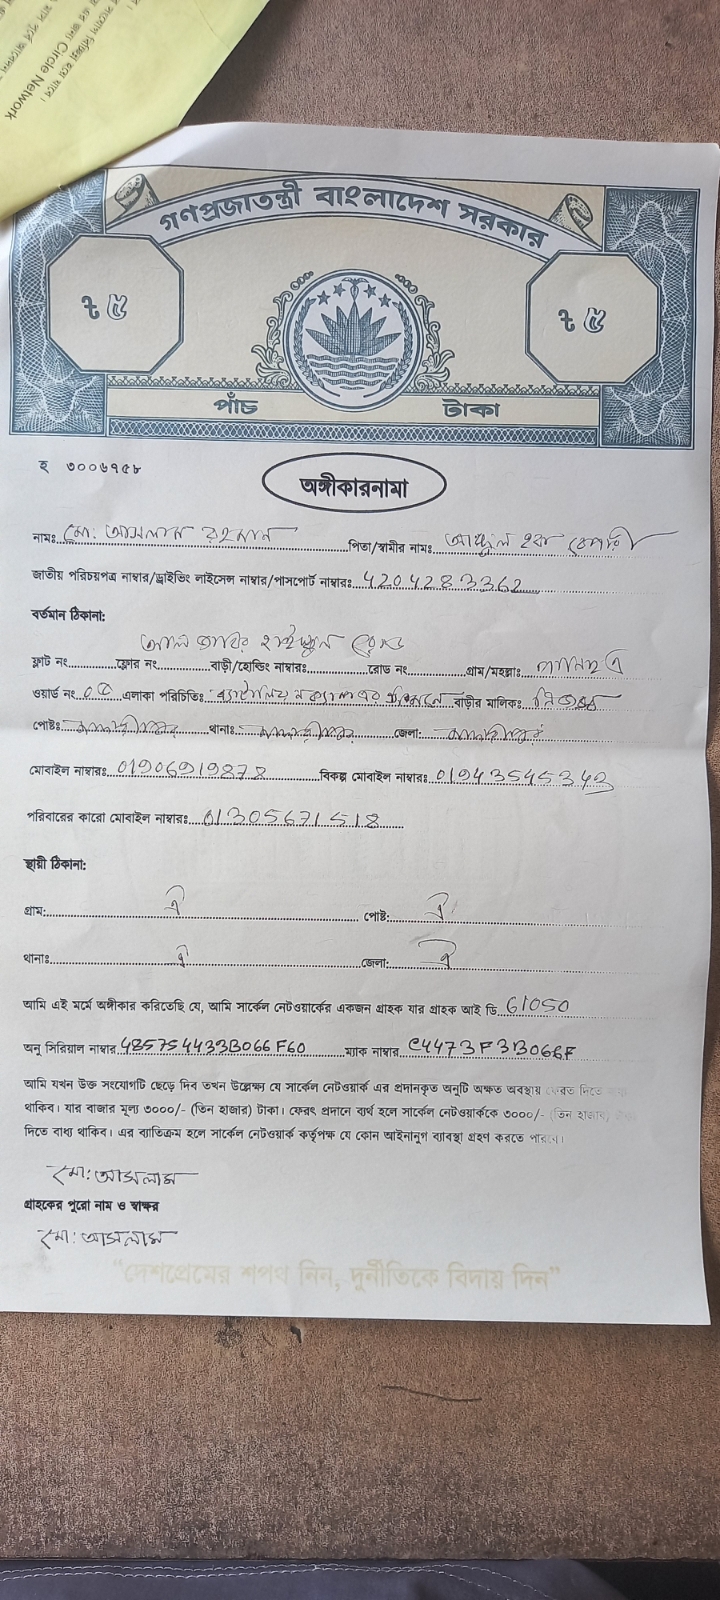 Circle Network
গণপ্রজাতন্ত্রী বাংলাদেশ সরকার
৳ ৫ ৳ ৫
পাঁচ টাকা
হ ৩০০৬৭৫৮
অঙ্গীকারনামা
নামঃ মো: আসলাম রহমান পিতা/স্বামীর নামঃ হক বেপারী
জাতীয় পরিচয়পত্র নাম্বার/ড্রাইভিং লাইসেন্স নাম্বার/পাসপোর্ট নাম্বারঃ 4204283362
বর্তমান ঠিকানা:
আল জাবির হাইস্কুল রোড
ফ্লাট নং ফ্লোর নং বাড়ী/হোল্ডিং নাম্বারঃ রোড নং গ্রাম/মহল্লাঃ
ওয়ার্ড নং 0৫ এলাকা পরিচিতিঃ বাড়ীর মালিকঃ নিজস্ব
পোষ্টঃ থানাঃ জেলা:
মোবাইল নাম্বারঃ 01906919878 বিকল্প মোবাইল নাম্বারঃ 01943545343
পরিবারের কারো মোবাইল নাম্বারঃ 01305671518
স্থায়ী ঠিকানা:
গ্রাম: ঐ পোষ্ট: ঐ
থানাঃ ঐ জেলা: ঐ
আমি এই মর্মে অঙ্গীকার করিতেছি যে, আমি সার্কেল নেটওয়ার্কের একজন গ্রাহক যার গ্রাহক আই ডি 61050
অনু সিরিয়াল নাম্বার 485754433B066F60 ম্যাক নাম্বার C4473F3B066F
আমি যখন উক্ত সংযোগটি ছেড়ে দিব তখন উল্লেক্ষ্য যে সার্কেল নেটওয়ার্ক এর প্রদানকৃত অনুটি অক্ষত অবস্থায় ফেরত দিতে
থাকিব। যার বাজার মূল্য ৩০০০/- (তিন হাজার) টাকা। ফেরৎ প্রদানে ব্যর্থ হলে সার্কেল নেটওয়ার্ককে ৩০০০/- (তিন হাজার)
দিতে বাধ্য থাকিব। এর ব্যতিক্রম হলে সার্কেল নেটওয়ার্ক কর্তৃপক্ষ যে কোন আইনানুগ ব্যাবস্থা গ্রহণ করতে পারবে।
মো: আসলাম
গ্রাহকের পুরো নাম ও স্বাক্ষর
মো: আসলাম
“দেশপ্রেমের শপথ নিন, দুর্নীতিকে বিদায় দিন”